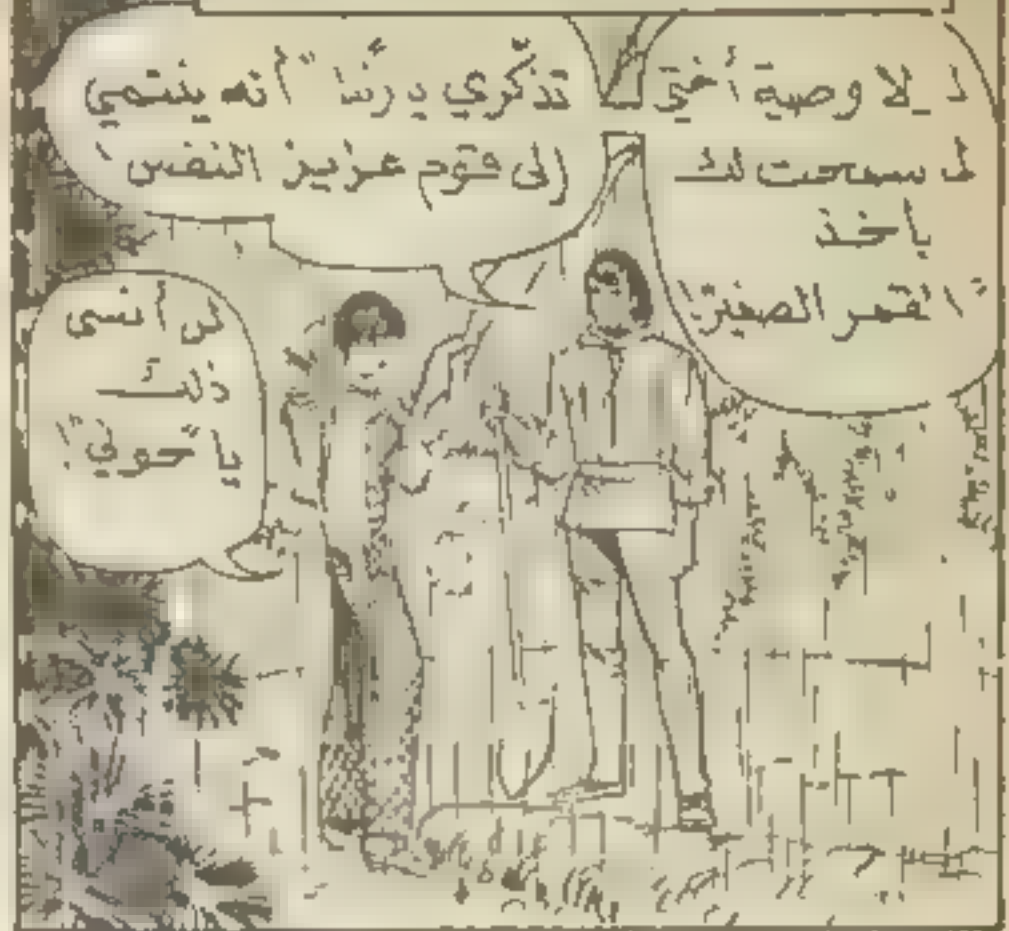 لولا وصية أختي
لما سمحت لك
بأخذ
"القمر الصغير"!
تذكّري يا أنه ينتمي
إلى قوم عزيز النفس
لن أنسى
ذلك
يا